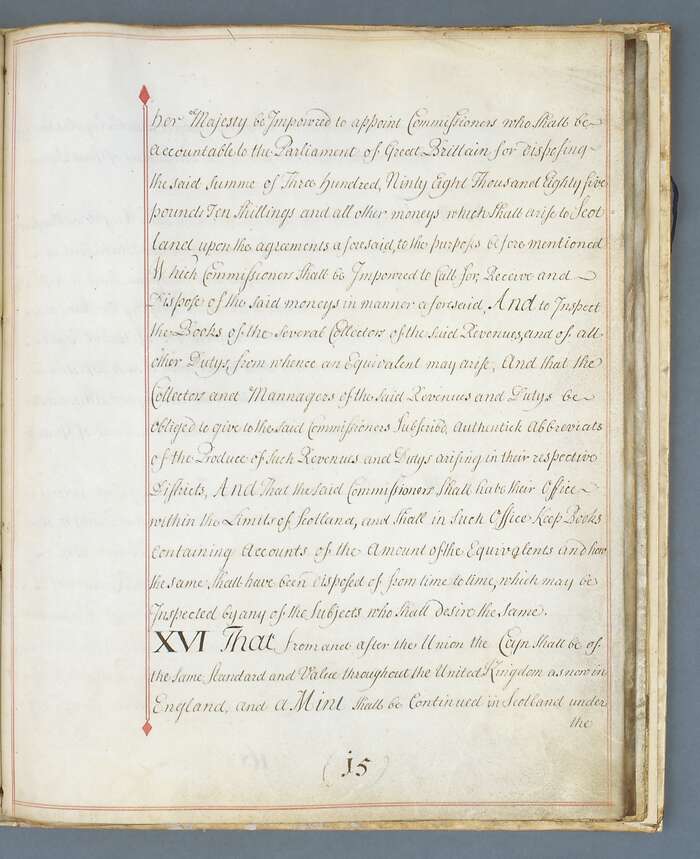 her Majesty be Impowred to appoint Commissioners who Shall be
accountable to the Parliament of Great Brittain for disposing
the said Summe of Three hundred, Ninty Eight Thousand Eighty five
pounds Ten Shillings and all other moneys which Shall arise to Scot
land upon the agreements aforesaid, to the purposes before mentioned
Which Commissioners Shall be Impowred to Call for, Receive and
Dispose of the said moneys in manner aforesaid, And to Inspect
the Books of the Several Collectors of the said Revenues, and of all
other Dutys, from whence an Equivalent may arise, And that the
Collectors and Mannagers of the said Revenues and Dutys be
obliged to give to the said Commissioners Subscrib'd Authentick Abbreviats
of the Produce of Such Revenues and Dutys arising in their respective
Districts, And That the said Commissioners Shall have their Office
within the Limits of Scotland, and Shall in Such Office Keep Books
containing Accounts of the Amount of the Equivalents and how
the same Shall have been Disposed of from time to time, which may be
Inspected by any of the Subjects who Shall desire the Same.
XVI That from and after the Union the Coyn Shall be of
the same Standard and Value throughout the United Kingdom as now in
England, and a Mint Shall be Continued in Scotland under
the
(15)